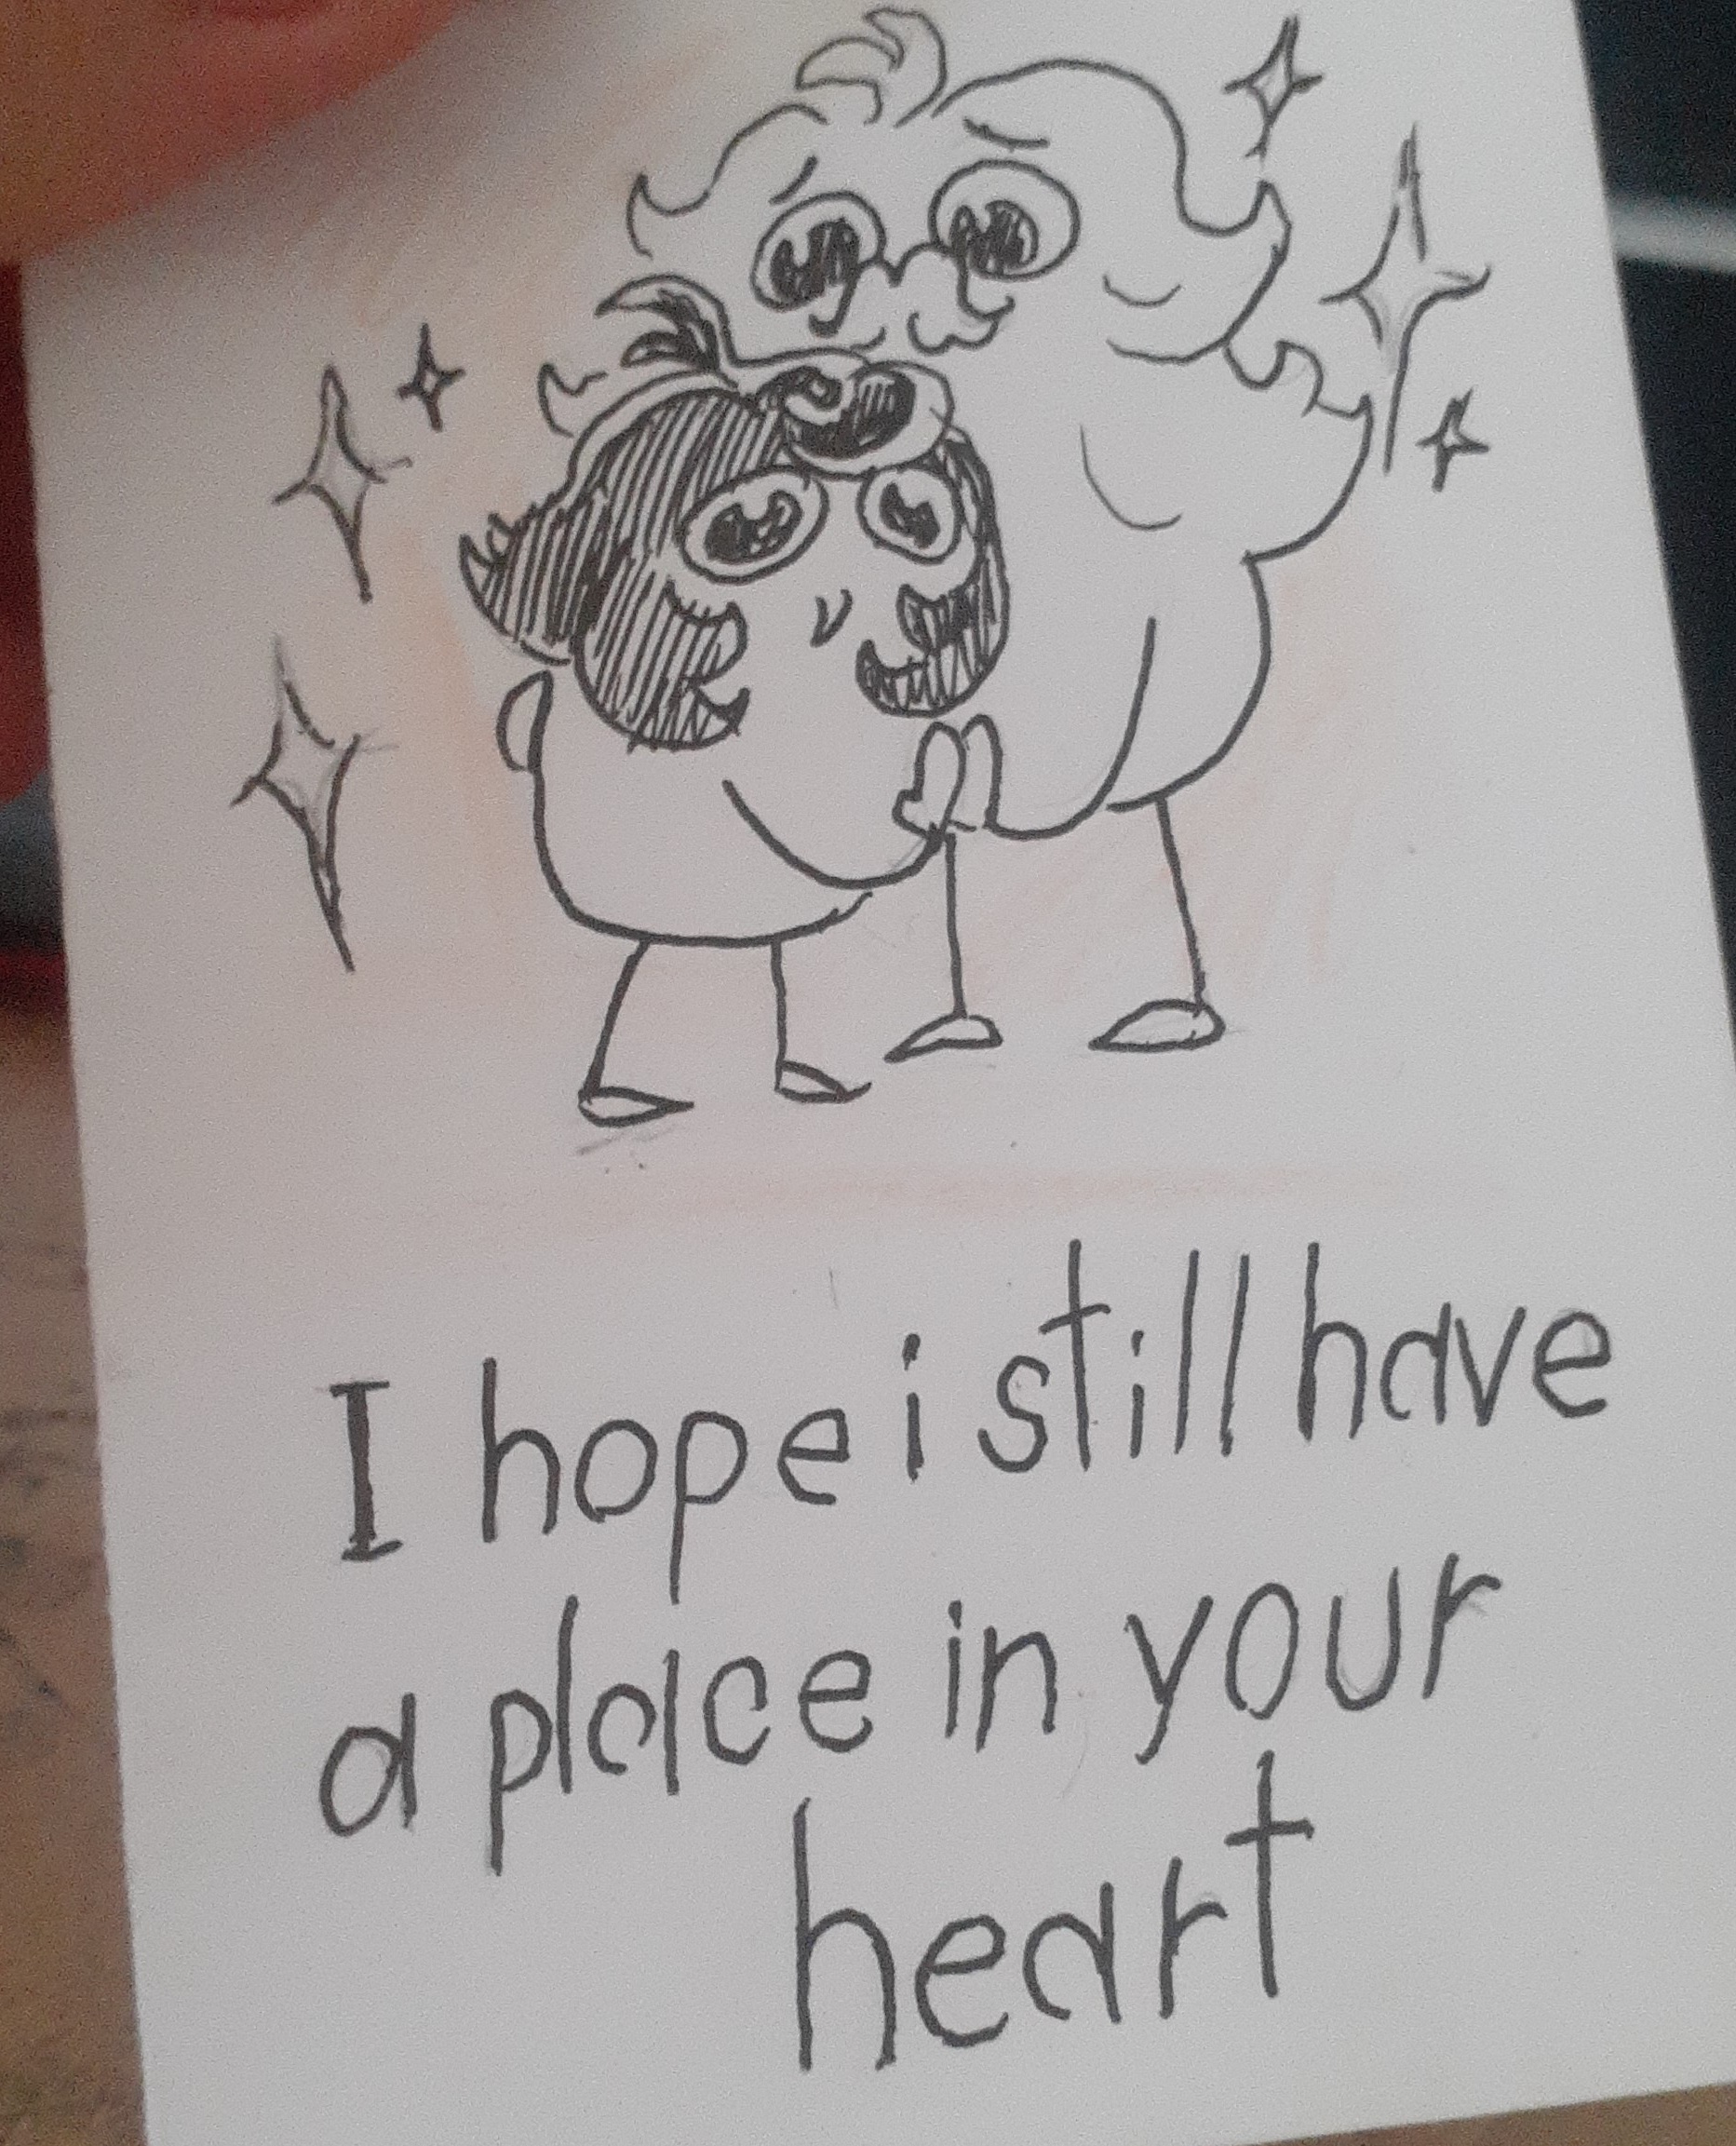 I hope i still have
a place in your
heart